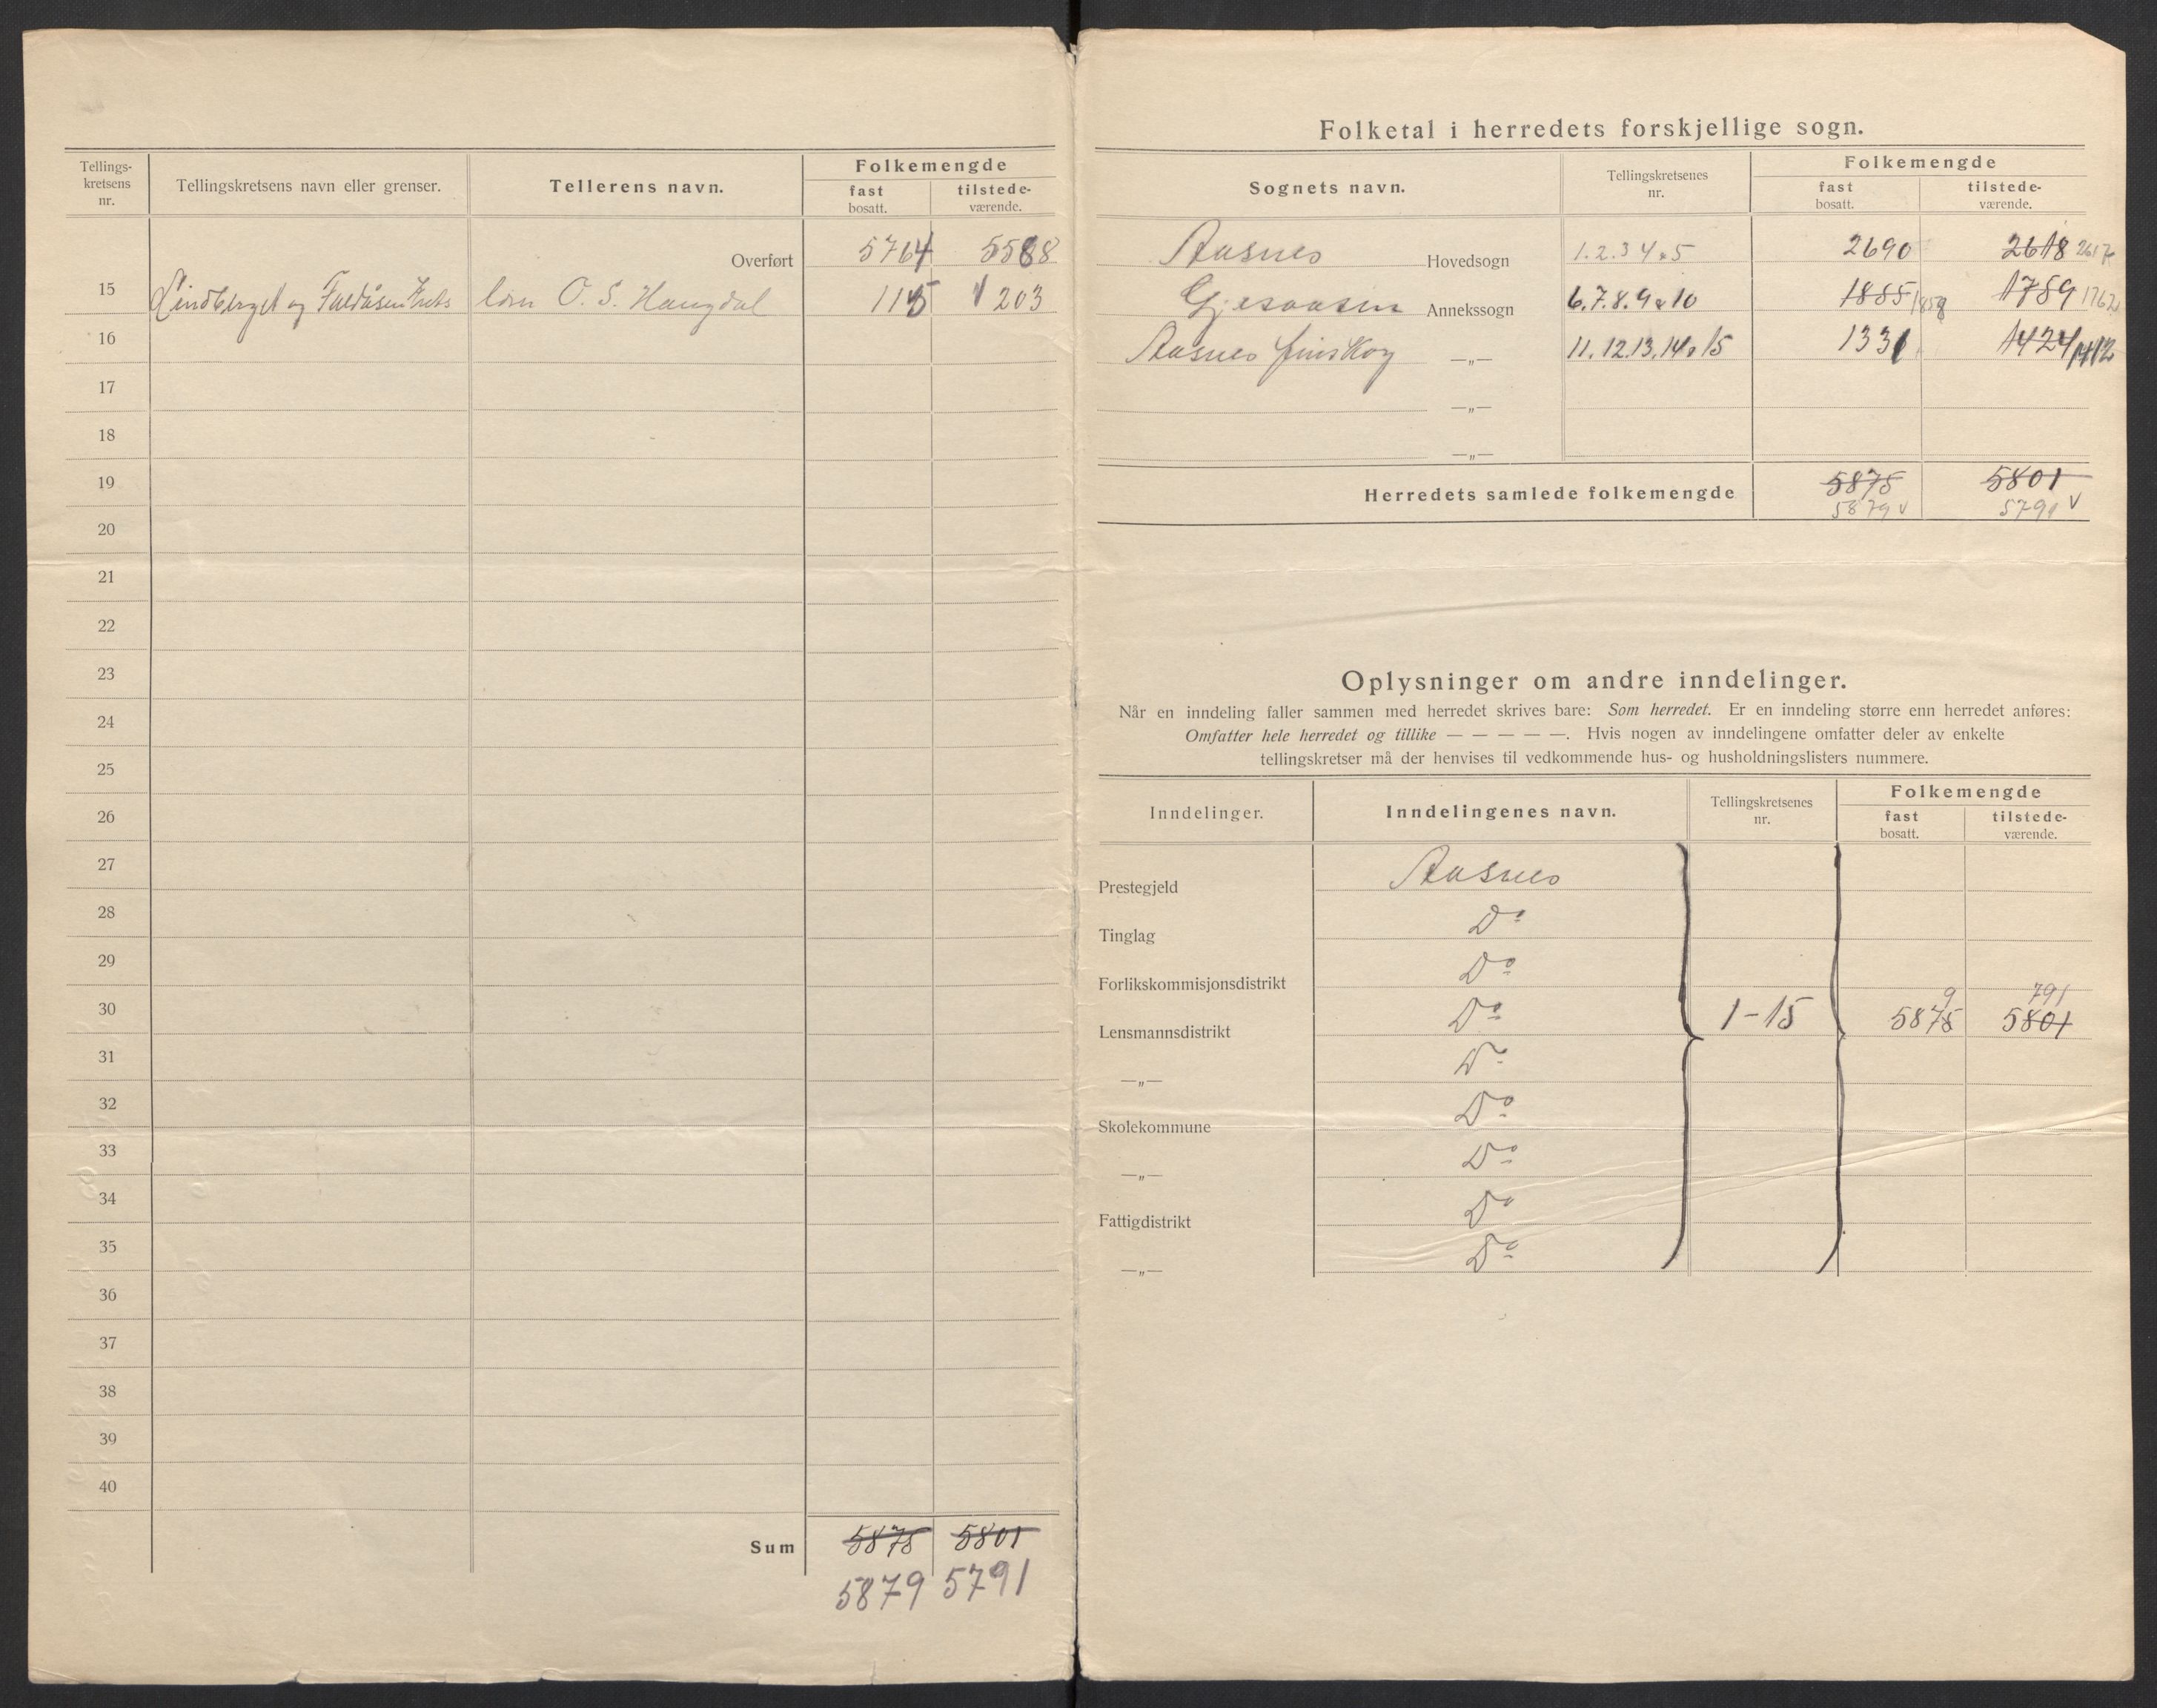 Tellings-
kretsens
nr.
Tellingskretsens navn eller grenser.
Tellerens navn.
Folkemengde
fast
bosatt.
tilstede-
værende.
Overført 5764 5588
15 Lindberget og Faldåsen Krets lærer O. S. Haugdal 115 203
16
17
18
19
20
21
22
23
24
25
26
27
28
29
30
31
32
33
34
35
36
37
38
39
40
Sum 5875 5801
5879 5791
Folketal i herredets forskjellige sogn.
Sognets navn.
Tellingskretsenes
nr.
Folkemengde
fast
bosatt.
tilstede-
værende.
Aasnes Hovedsogn 1.2.3 4 & 5 2690 2618 2617
Gjesaasen Annekssogn 6.7.8.9 & 10 1855 1858 1759 1762
Aasnes finskog —„— 11.12.13.14 & 15 1331 1424 1412
—„—
—„—
Herredets samlede folkemengde 5875 5801
5879 v 5791 v
Oplysninger om andre inndelinger.
Når en inndeling faller sammen med herredet skrives bare: Som herredet. Er en inndeling større enn herredet anføres:
Omfatter hele herredet og tillike — — — — —. Hvis nogen av inndelingene omfatter deler av enkelte
tellingskretser må der henvises til vedkommende hus- og husholdningslisters nummere.
Inndelinger.
Inndelingenes navn.
Tellingskretsenes
nr.
Folkemengde
fast
bosatt.
tilstede-
værende.
Prestegjeld Aasnes
Tinglag Do
Forlikskommisjonsdistrikt Do
9 791
Lensmannsdistrikt Do 1-15 5875 5801
—„— Do
Skolekommune Do
—„— Do
Fattigdistrikt Do
—„— Do